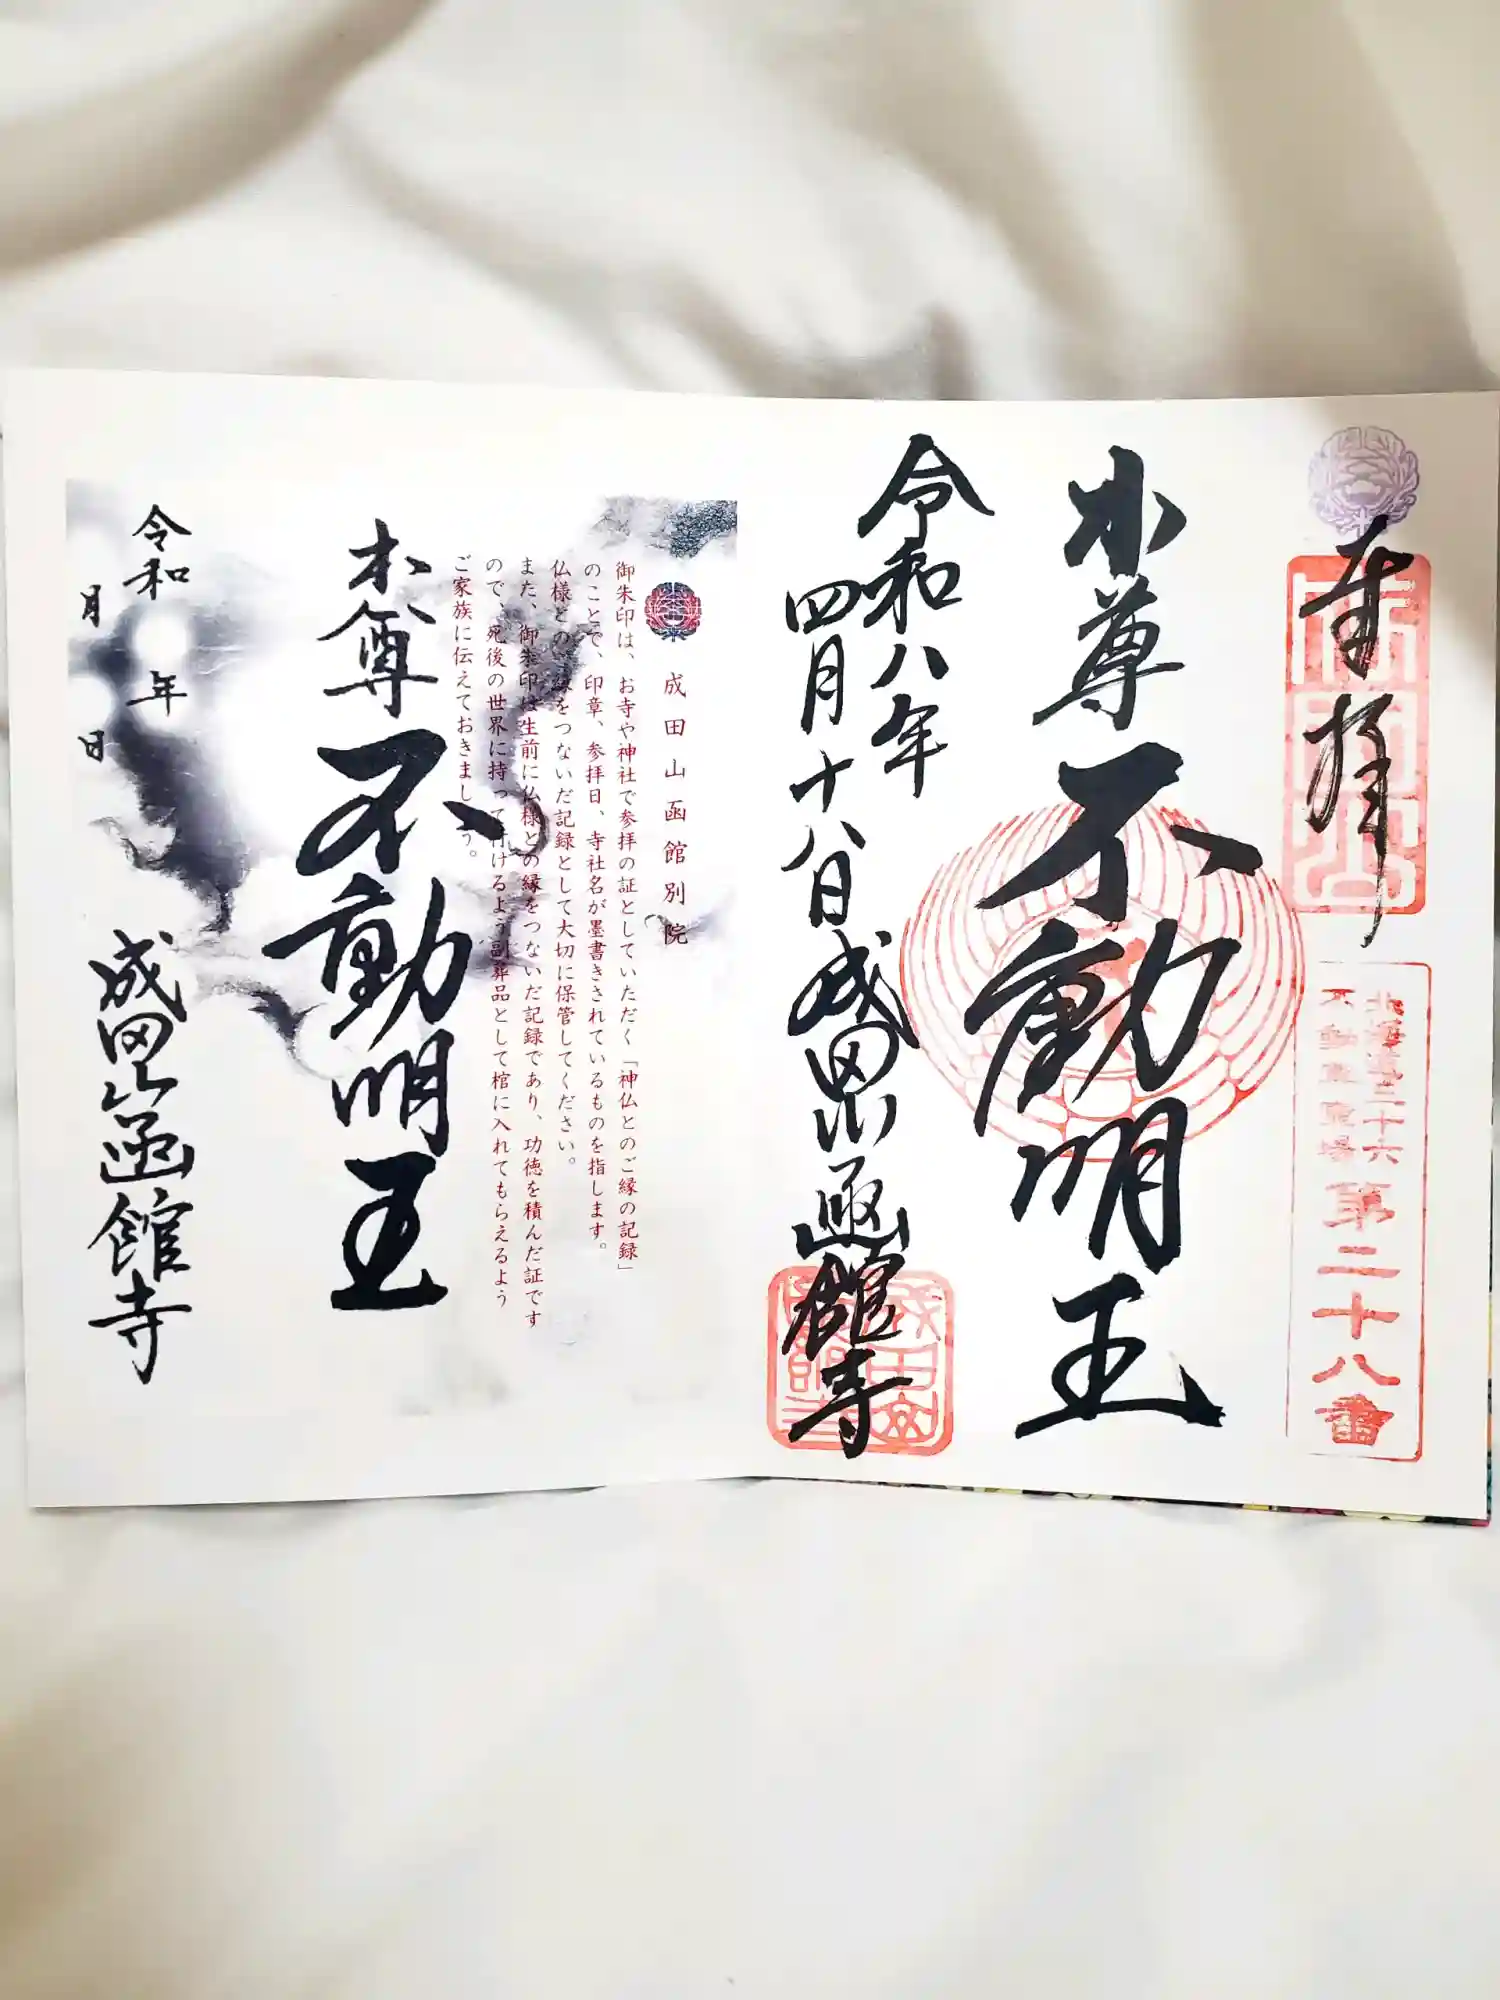 奉拝
北海道三十六
不動尊霊場
第二十八番
本尊 不動明王
令和八年
四月十八日
成田山函館寺
成田山函館別院
御朱印は、お寺や神社で参拝の証としていただく「神仏とのご縁の記録」
のことで、印章、参拝日、寺社名が墨書きされているものを指します。
仏様とのご縁をつないだ記録として大切に保管してください。
また、御朱印は生前に仏様との縁をつないだ記録であり、功徳を積んだ証です
ので、死後の世界に持って行けるよう副葬品として棺に入れてもらえるよう
ご家族に伝えておきましょう。
本尊 不動明王
令和 年
月 日
成田山函館寺